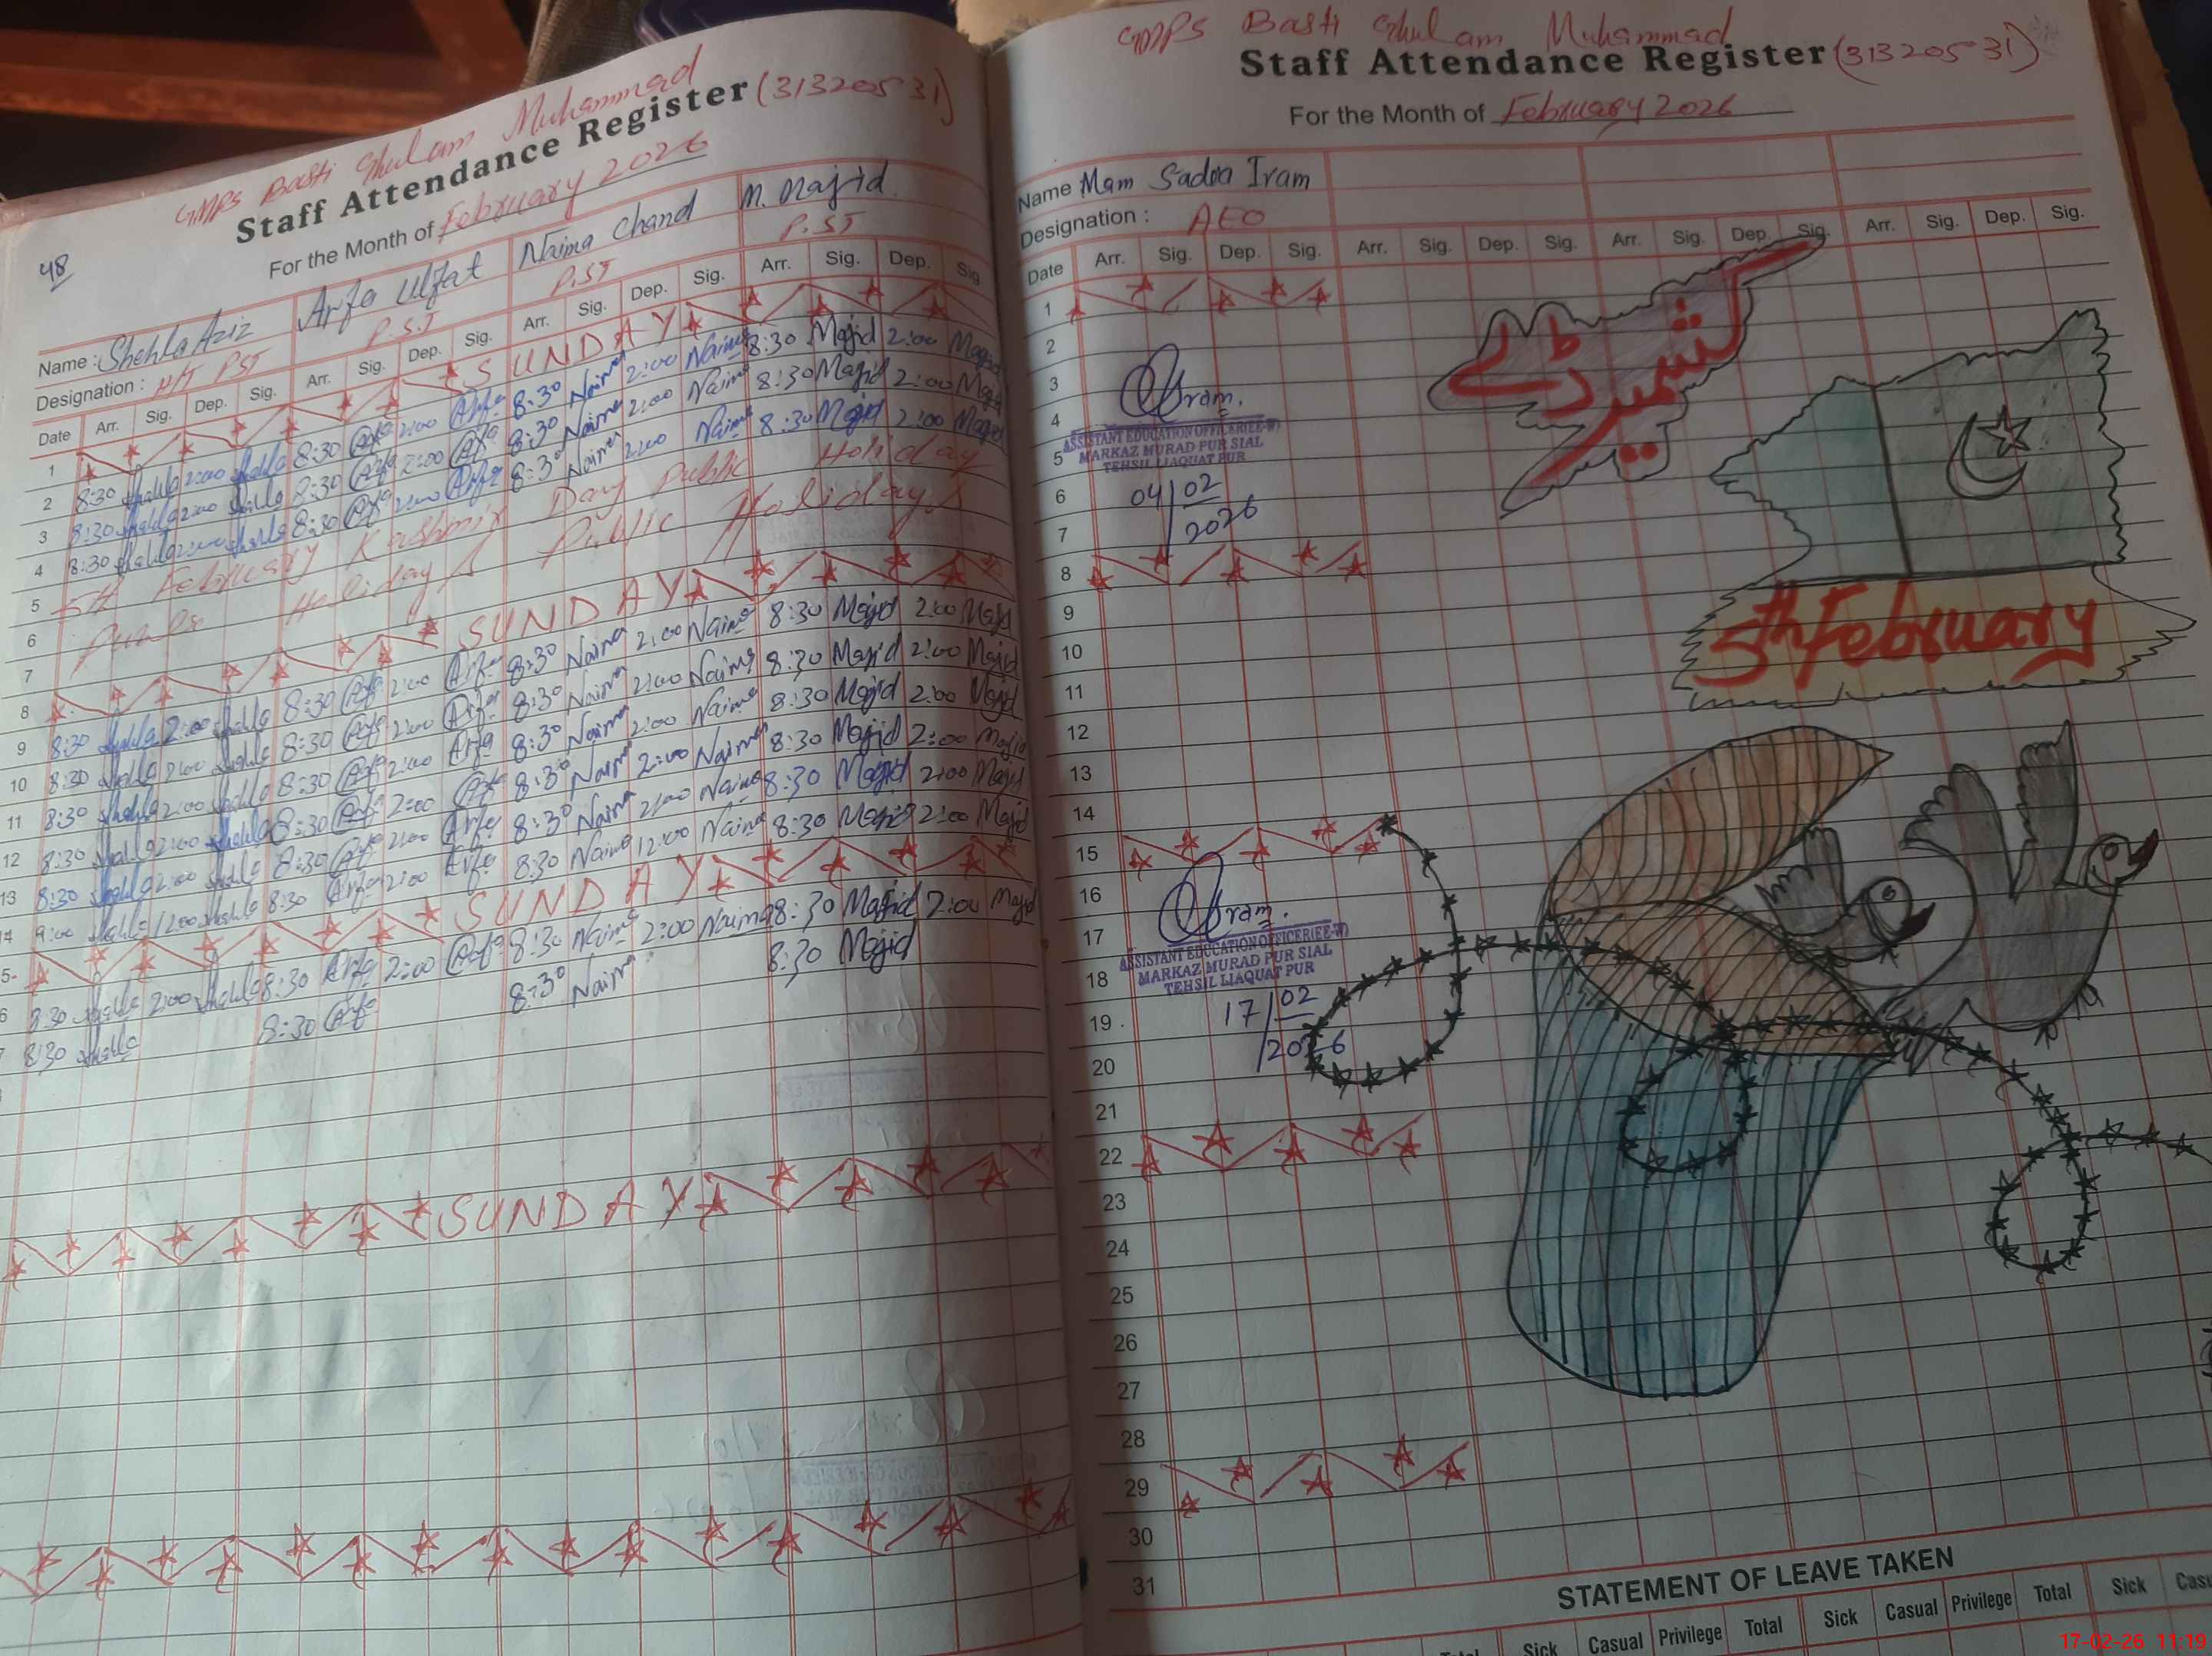 48
GMPS Basti Ghulam Muhammad
Staff Attendance Register (31320531)
For the Month of February 2026
Name : Shehla Aziz Arfa Ulfat Naima Chand M. Majid
Designation : H/T PST P.S.T P.ST P.ST
Date Arr. Sig. Dep. Sig. Arr. Sig. Dep. Sig. Arr. Sig. Dep. Sig. Arr. Sig. Dep. Sig
1 SUNDAY
2 8:30 Shehla 2:00 Shehla 8:30 Arfa 2:00 Arfa 8:30 Naima 2:00 Naima 8:30 Majid 2:00 Majid
3 8:30 Shehla 2:00 Shehla 8:30 Arfa 2:00 Arfa 8:30 Naima 2:00 Naima 8:30 Majid 2:00 Majid
4 8:30 Shehla 2:00 Shehla 8:30 Arfa 2:00 Arfa 8:30 Naima 2:00 Naima 8:30 Majid 2:00 Majid
5 5th February Kashmir Day Public Holiday
6 Holiday Public Holiday
7
8 SUNDAY
9 8:30 Shehla 2:00 Shehla 8:30 Arfa 2:00 Arfa 8:30 Naima 2:00 Naima 8:30 Majid 2:00 Majid
10 8:30 Shehla 2:00 Shehla 8:30 Arfa 2:00 Arfa 8:30 Naima 2:00 Naima 8:30 Majid 2:00 Majid
11 8:30 Shehla 2:00 Shehla 8:30 Arfa 2:00 Arfa 8:30 Naima 2:00 Naima 8:30 Majid 2:00 Majid
12 8:30 Shehla 2:00 Shehla 8:30 Arfa 2:00 Arfa 8:30 Naima 2:00 Naima 8:30 Majid 2:00 Majid
13 8:30 Shehla 2:00 Shehla 8:30 Arfa 2:00 Arfa 8:30 Naima 2:00 Naima 8:30 Majid 2:00 Majid
14 9:00 Shehla 12:00 Shehla 8:30 Arfa 2:00 Arfa 8:30 Naima 12:00 Naima 8:30 Majid 2:00 Majid
5 SUNDAY
6 8:30 Shehla 2:00 Shehla 8:30 Arfa 2:00 Arfa 8:30 Naima 2:00 Naima 8:30 Majid 2:00 Majid
7 8:30 Shehla 8:30 Arfa 8:30 Naima 8:30 Majid
SUNDAY
GMPS Basti Ghulam Muhammad
Staff Attendance Register (31320531)
For the Month of February 2026
Name Mam Sadia Iram
Designation : AEO
Date Arr. Sig. Dep. Sig. Arr. Sig. Dep. Sig. Arr. Sig. Dep. Sig. Arr. Sig. Dep. Sig.
1
2
3
Iram.
4
ASSISTANT EDUCATION OFFICER(EE-W)
5
MARKAZ MURAD PUR SIAL
TEHSIL LIAQUAT PUR
6
04/02
2026
7
8
کشمیر ڈے
5th February
9
10
11
12
13
14
15
16
Iram.
17
ASSISTANT EDUCATION OFFICER(EE-W)
MARKAZ MURAD PUR SIAL
18
TEHSIL LIAQUAT PUR
17/02
19
2026
20
21
22
23
24
25
26
27
28
29
30
31
STATEMENT OF LEAVE TAKEN
Sick Casual Privilege Total Sick Casual Privilege Total Sick
17-02-26 11:19